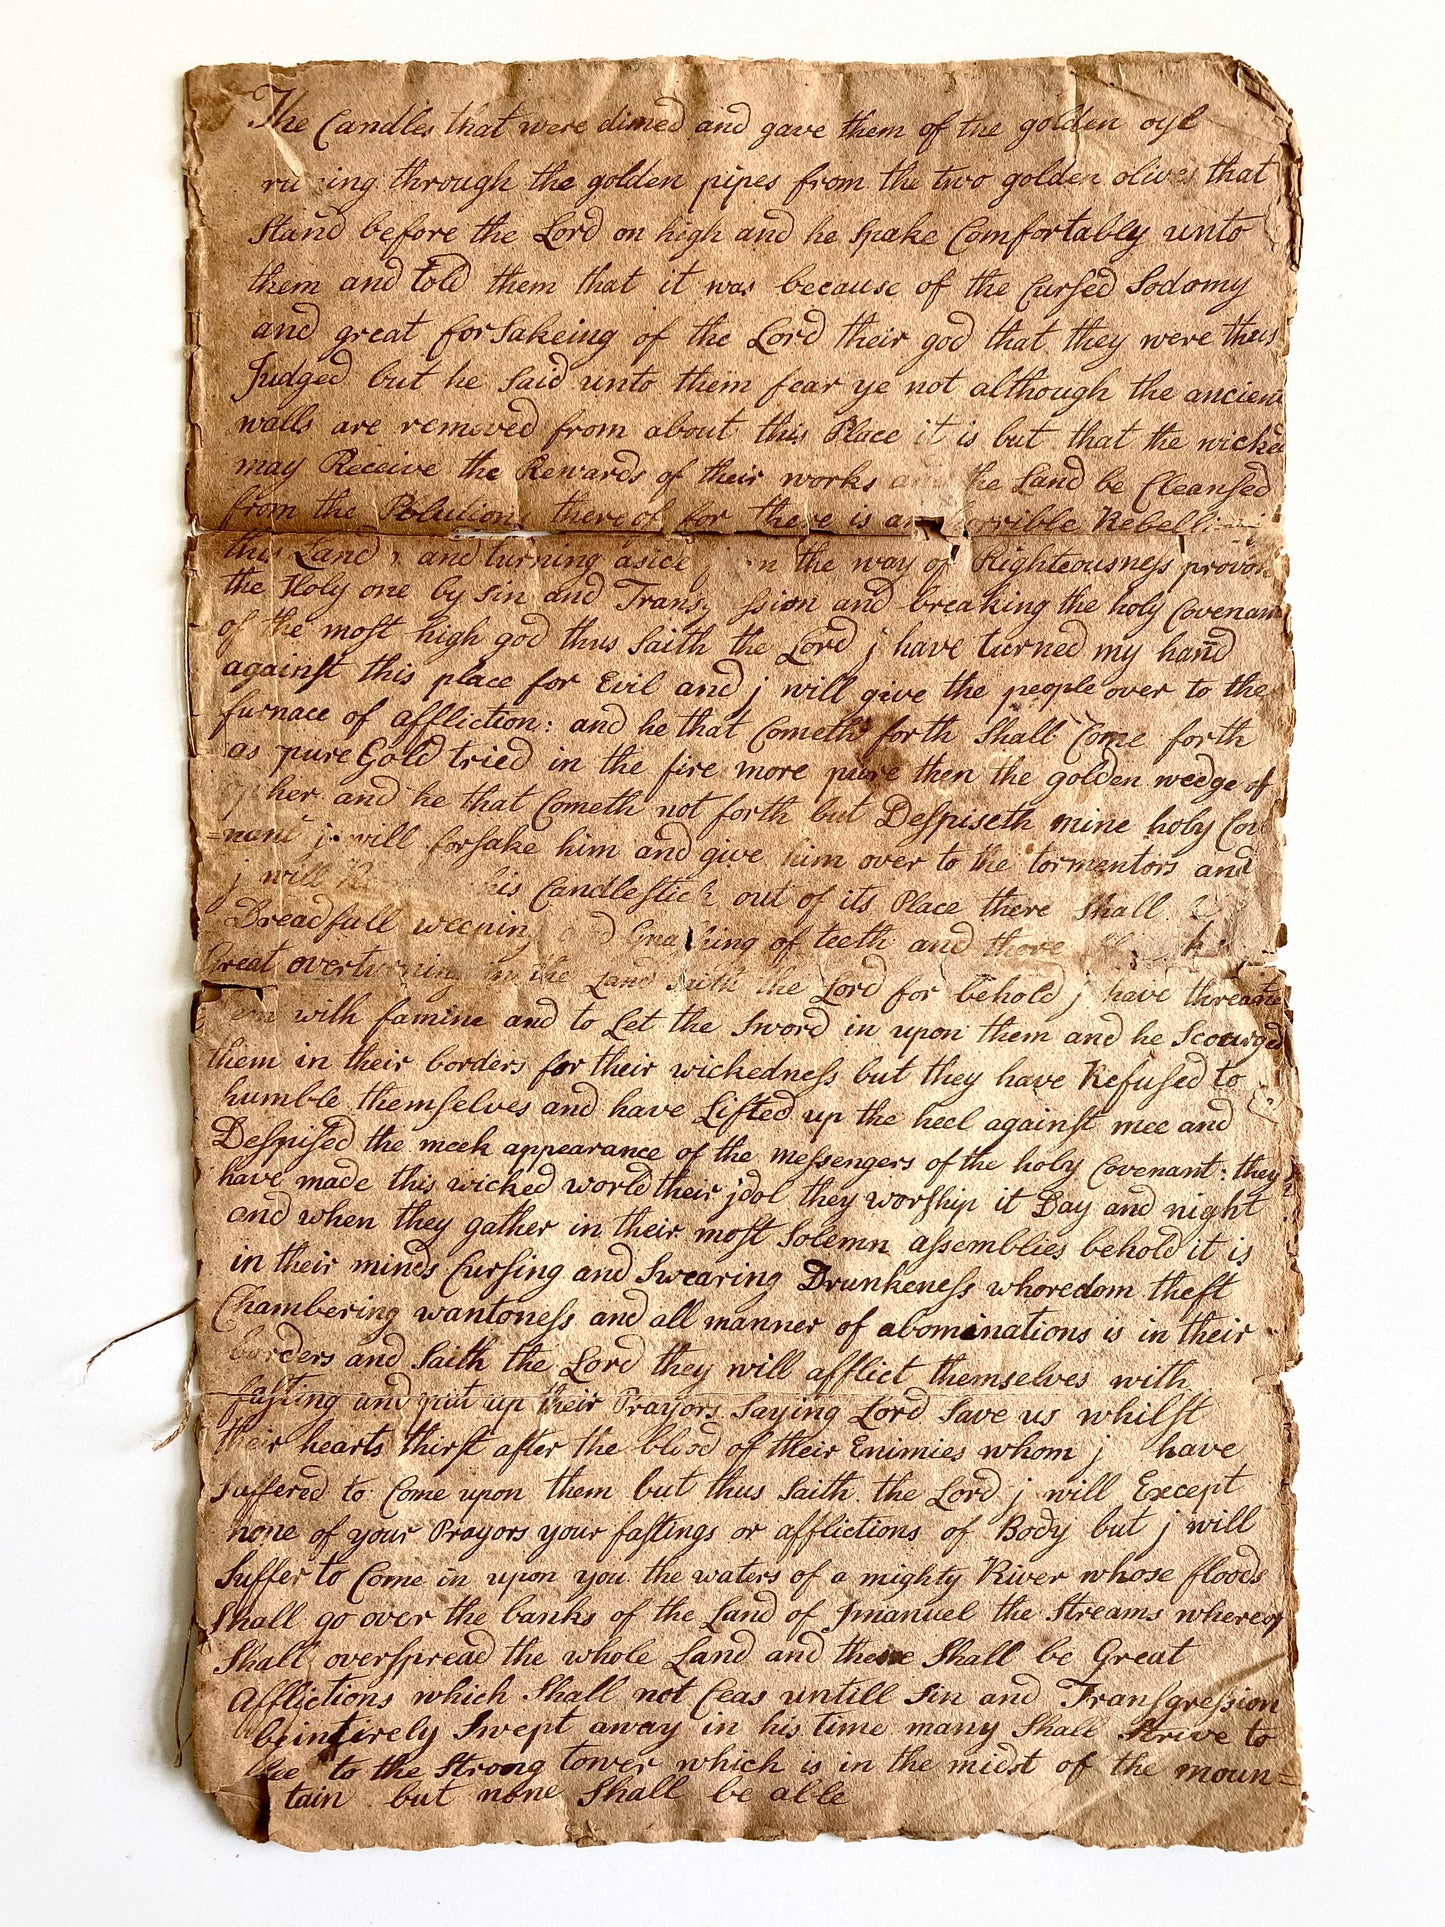 The Candles that were dimed and gave them of the golden oyl
through the golden pipes from the two golden olives that
Stand before the Lord on high and he spake Comfortably unto
them and told them that it was because of the Cursed Sodomy
and great forsakeing of the Lord their god that they were thus
Judged but he Said unto them fear ye not although the ancient
walls are removed from about this Place it is but that the wicked
may Receive the Rewards of their works and the Land be Cleansed
from the Polution thereof for there is an horrible
this Land and turning aside the way of Righteousness
the Holy one by sin and and breaking the holy Covenant
of the most high god thus Saith the Lord j have turned my hand
against this place for Evil and j will give the people over to the
furnace of affliction: and he that Cometh forth Shall Come forth
as pure Gold tried in the fire more pure then the golden wedge of
and he that Cometh not forth but Despiseth mine holy
=nant j will forsake him and give him over to the tormentors and
j will his Candlestick out of its Place there Shall
Dreadfull and of teeth and there
Great overturning in the Land Saith the Lord for behold j have
with famine and to Let the Sword in upon them and he Scourged
them in their borders for their wickedness but they have Refused to
humble themselves and have Lifted up the heel against mee and
Despised the meek appearance of the messengers of the holy Covenant: they
have made this wicked world their jdol they worship it Day and night
and when they gather in their most Solemn assemblies behold it is
in their minds Cursing and Swearing Drunkeness whoredom theft
Chambering wantoness and all manner of abominations is in their
borders and Saith the Lord they will afflict themselves with
fasting and put up their Prayors Saying Lord Save us whilst
their hearts thirst after the blood of their Enimies whom j have
Suffered to Come upon them but thus Saith the Lord j will Except
none of your Prayors your fastings or afflictions of Body but j will
Suffer to Come in upon you the waters of a mighty River whose floods
Shall go over the banks of the Land of Jmanuel the Streams whereof
Shall overspread the whole Land and there Shall be Great
Afflictions which Shall not Ceas untill Sin and Transgression
be intirely Swept away in his time many Shall Strive to
to the Strong tower which is in the midst of the moun=
tain but none Shall be able